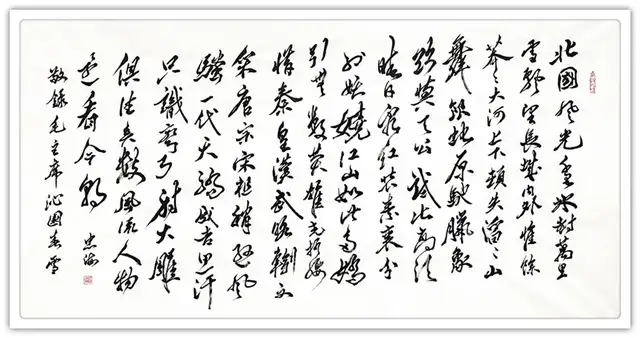 北國风光千里冰封萬里
雪飘望長城内外惟餘
莽々大河上下頓失滔々山
舞銀蛇原馳臘象
欲與天公試比高須
晴日看红裝素裹分
外妖嬈江山如此多嬌
引無數英雄竞折腰
惜秦皇漢武略輸文
采唐宗宋祖稍遜风
骚一代天骄成吉思汗
只識彎弓射大雕
俱往矣數風流人物
還看今朝
敬錄毛主席沁園春雪
忠海